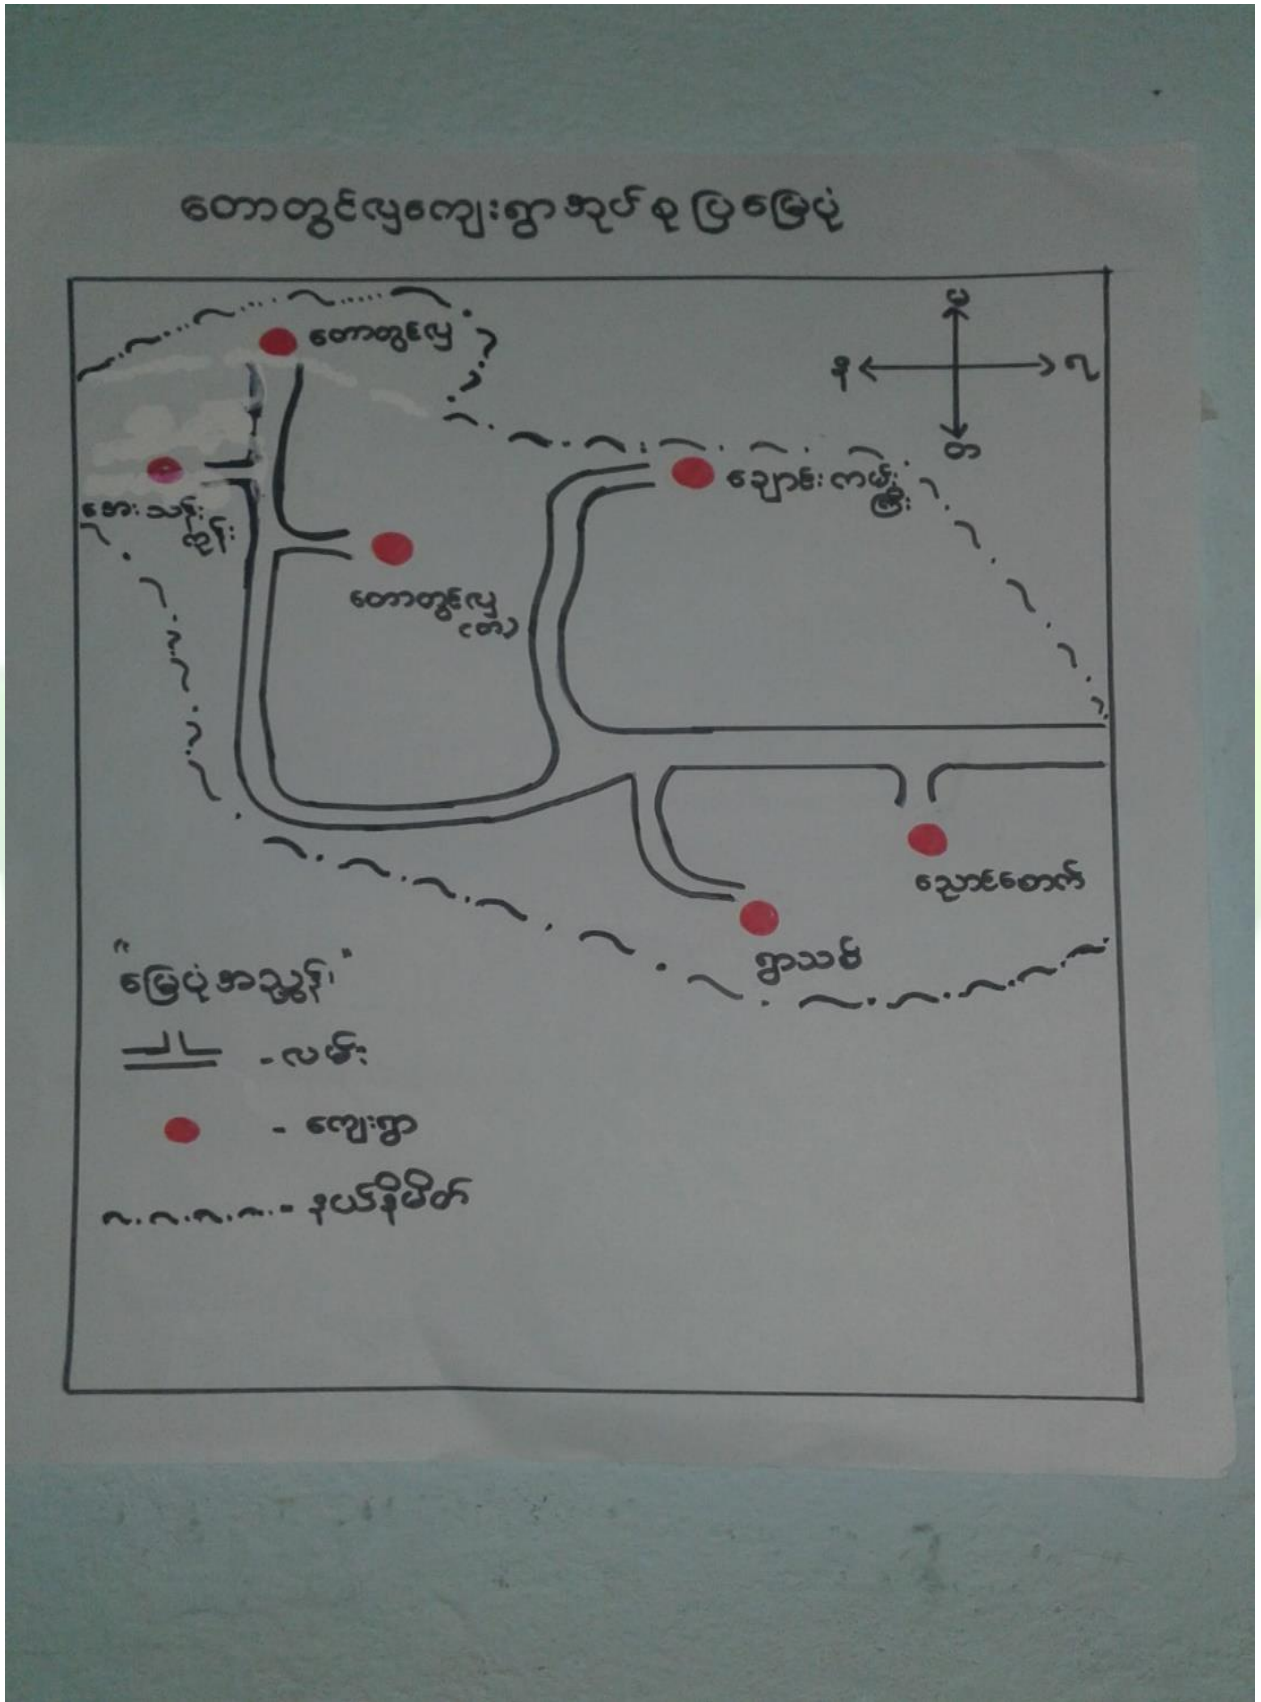 တောတွင်းလှကျေးရွာအုပ်စုပြမြေပုံ
တောတွင်းလှ
မ
န
ရ
တ
အေးသန်း
ကုန်း
ချောင်းကမ်း
ကြီး
တောတွင်းလှ
(တ)
ညောင်စောက်
ရွာသစ်
"မြေပုံအညွှန်း"
- လမ်း
- ကျေးရွာ
- နယ်နိမိတ်